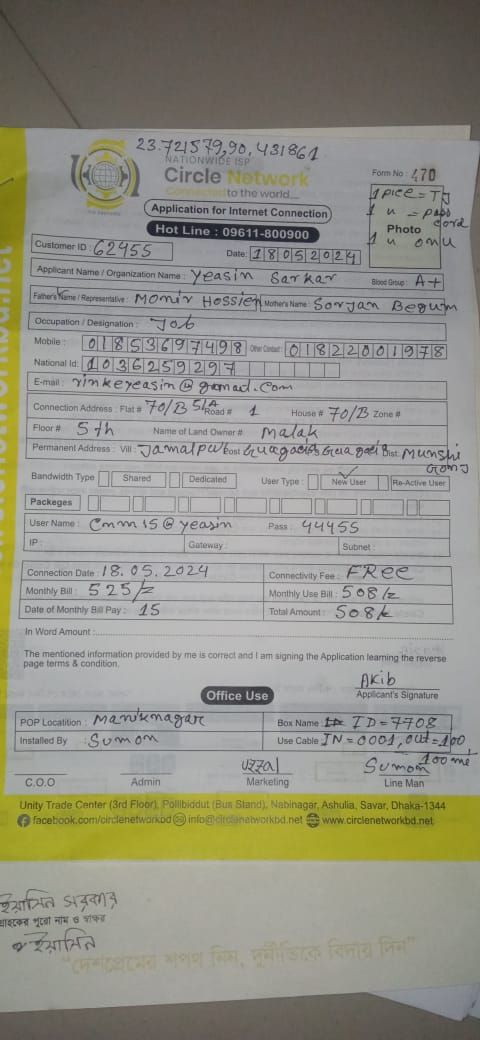 23.721579,90,431861
NATIONWIDE ISP
Circle Network
Connected to the world....
Form No : 470
Application for Internet Connection
Hot Line : 09611-800900
1 pice = TJ
1 u = Pass cord
Photo
1 u onu
Customer ID : 62455
Date: 18052024
Applicant Name / Organization Name : Yeasin Sarkar Blood Group : A+
Father's Name / Representative : Momir Hossien Mother's Name : Sorjan Begum
Occupation / Designation : Job
Mobile : 01853697498 Other Contact : 01822001978
National Id: 1036259297
E-mail : rinkeyeasin@gmail.com
Connection Address : Flat # 70/B 5/A Road # 1 House # 70/B Zone #
Floor # 5th Name of Land Owner # Malak
Permanent Address : Vill : Jamalpur Post Dist. Munshi Gonj
Bandwidth Type Shared Dedicated User Type : New User Re-Active User
Packeges
User Name : Cnm15@yeasin Pass : 44455
IP : Gateway : Subnet :
Connection Date : 18.05.2024 Connectivity Fee : FRee
Monthly Bill : 525/z Monthly Use Bill : 508/z
Date of Monthly Bill Pay : 15 Total Amount : 508/z
In Word Amount :
The mentioned information provided by me is correct and I am signing the Application learning the reverse
page terms & condition.
Akib
Office Use
Applicant's Signature
POP Locatition : Maniknagar Box Name : ID=7708
Installed By : Sumon Use Cable IN = 0001, out = 100
100 mi
uzzal Sumon
C.O.O Admin Marketing Line Man
Unity Trade Center (3rd Floor), Pollibiddut (Bus Stand), Nabinagar, Ashulia, Savar, Dhaka-1344
facebook.com/circlenetworkbd info@circlenetworkbd.net www.circlenetworkbd.net
ইয়াসিন সরকার
গ্রাহকের পুরো নাম ও স্বাক্ষর
ইয়াসিন
"দেশপ্রেমের শপথ নিন, দুর্নীতিকে বিদায় দিন"